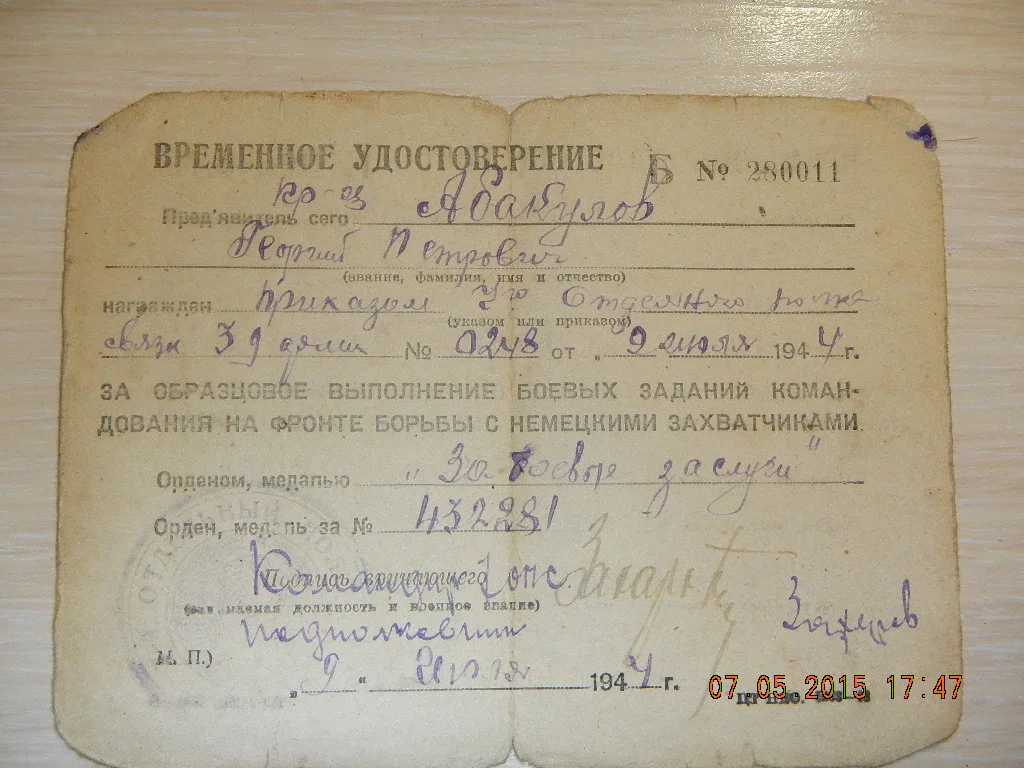 ВРЕМЕННОЕ УДОСТОВЕРЕНИЕ Б № 280011
Пред'явитель сего кр-ец Абакулов
Георгий Петрович
(звание, фамилия, имя и отчество)
награжден приказом Отдельного полка
(указом или приказом)
связи 39 армии № 0248 от „9" июля 1944 г.
ЗА ОБРАЗЦОВОЕ ВЫПОЛНЕНИЕ БОЕВЫХ ЗАДАНИЙ КОМАН-
ДОВАНИЯ НА ФРОНТЕ БОРЬБЫ С НЕМЕЦКИМИ ЗАХВАТЧИКАМИ
Орденом, медалью „За боевые заслуги"
Орден, медаль за № 432281
ОТДЕЛЬНЫЙ
Подпись вручающего Командир опс
(занимаемая должность и военное звание)
подполковник Захаров
М. П.)
„9" Июля 1944 г.
07.05.2015 17:47